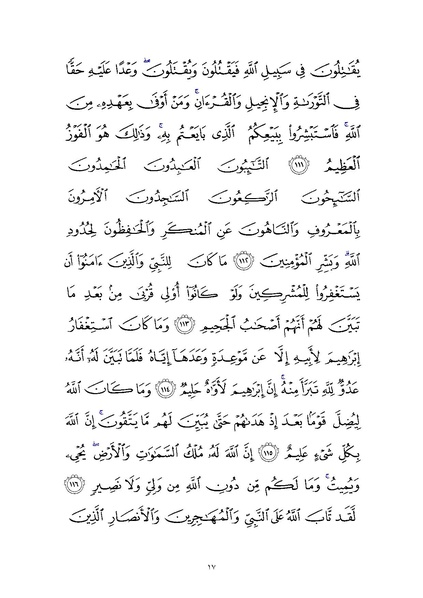 يُقَـٰتِلُونَ فِى سَبِيلِ ٱللَّهِ فَيَقْتُلُونَ وَيُقْتَلُونَ ۖ وَعْدًا عَلَيْهِ حَقًّا
فِى ٱلتَّوْرَىٰةِ وَٱلْإِنجِيلِ وَٱلْقُرْءَانِ ۚ وَمَنْ أَوْفَىٰ بِعَهْدِهِۦ مِنَ
ٱللَّهِ ۚ فَٱسْتَبْشِرُوا۟ بِبَيْعِكُمُ ٱلَّذِى بَايَعْتُم بِهِۦ ۚ وَذَٰلِكَ هُوَ ٱلْفَوْزُ
ٱلْعَظِيمُ ١١١ ٱلتَّـٰٓئِبُونَ ٱلْعَـٰبِدُونَ ٱلْحَـٰمِدُونَ
ٱلسَّـٰٓئِحُونَ ٱلرَّٰكِعُونَ ٱلسَّـٰجِدُونَ ٱلْـَٔامِرُونَ
بِٱلْمَعْرُوفِ وَٱلنَّاهُونَ عَنِ ٱلْمُنكَرِ وَٱلْحَـٰفِظُونَ لِحُدُودِ
ٱللَّهِ ۗ وَبَشِّرِ ٱلْمُؤْمِنِينَ ١١٢ مَا كَانَ لِلنَّبِىِّ وَٱلَّذِينَ ءَامَنُوٓا۟ أَن
يَسْتَغْفِرُوا۟ لِلْمُشْرِكِينَ وَلَوْ كَانُوٓا۟ أُو۟لِى قُرْبَىٰ مِنۢ بَعْدِ مَا
تَبَيَّنَ لَهُمْ أَنَّهُمْ أَصْحَـٰبُ ٱلْجَحِيمِ ١١٣ وَمَا كَانَ ٱسْتِغْفَارُ
إِبْرَٰهِيمَ لِأَبِيهِ إِلَّا عَن مَّوْعِدَةٍ وَعَدَهَآ إِيَّاهُ فَلَمَّا تَبَيَّنَ لَهُۥٓ أَنَّهُۥ
عَدُوٌّ لِّلَّهِ تَبَرَّأَ مِنْهُ ۚ إِنَّ إِبْرَٰهِيمَ لَأَوَّٰهٌ حَلِيمٌ ١١٤ وَمَا كَانَ ٱللَّهُ
لِيُضِلَّ قَوْمًۢا بَعْدَ إِذْ هَدَىٰهُمْ حَتَّىٰ يُبَيِّنَ لَهُم مَّا يَتَّقُونَ ۚ إِنَّ ٱللَّهَ
بِكُلِّ شَىْءٍ عَلِيمٌ ١١٥ إِنَّ ٱللَّهَ لَهُۥ مُلْكُ ٱلسَّمَـٰوَٰتِ وَٱلْأَرْضِ ۖ يُحْىِۦ
وَيُمِيتُ ۚ وَمَا لَكُم مِّن دُونِ ٱللَّهِ مِن وَلِىٍّ وَلَا نَصِيرٍ ١١٦
لَّقَد تَّابَ ٱللَّهُ عَلَى ٱلنَّبِىِّ وَٱلْمُهَـٰجِرِينَ وَٱلْأَنصَارِ ٱلَّذِينَ
١٧